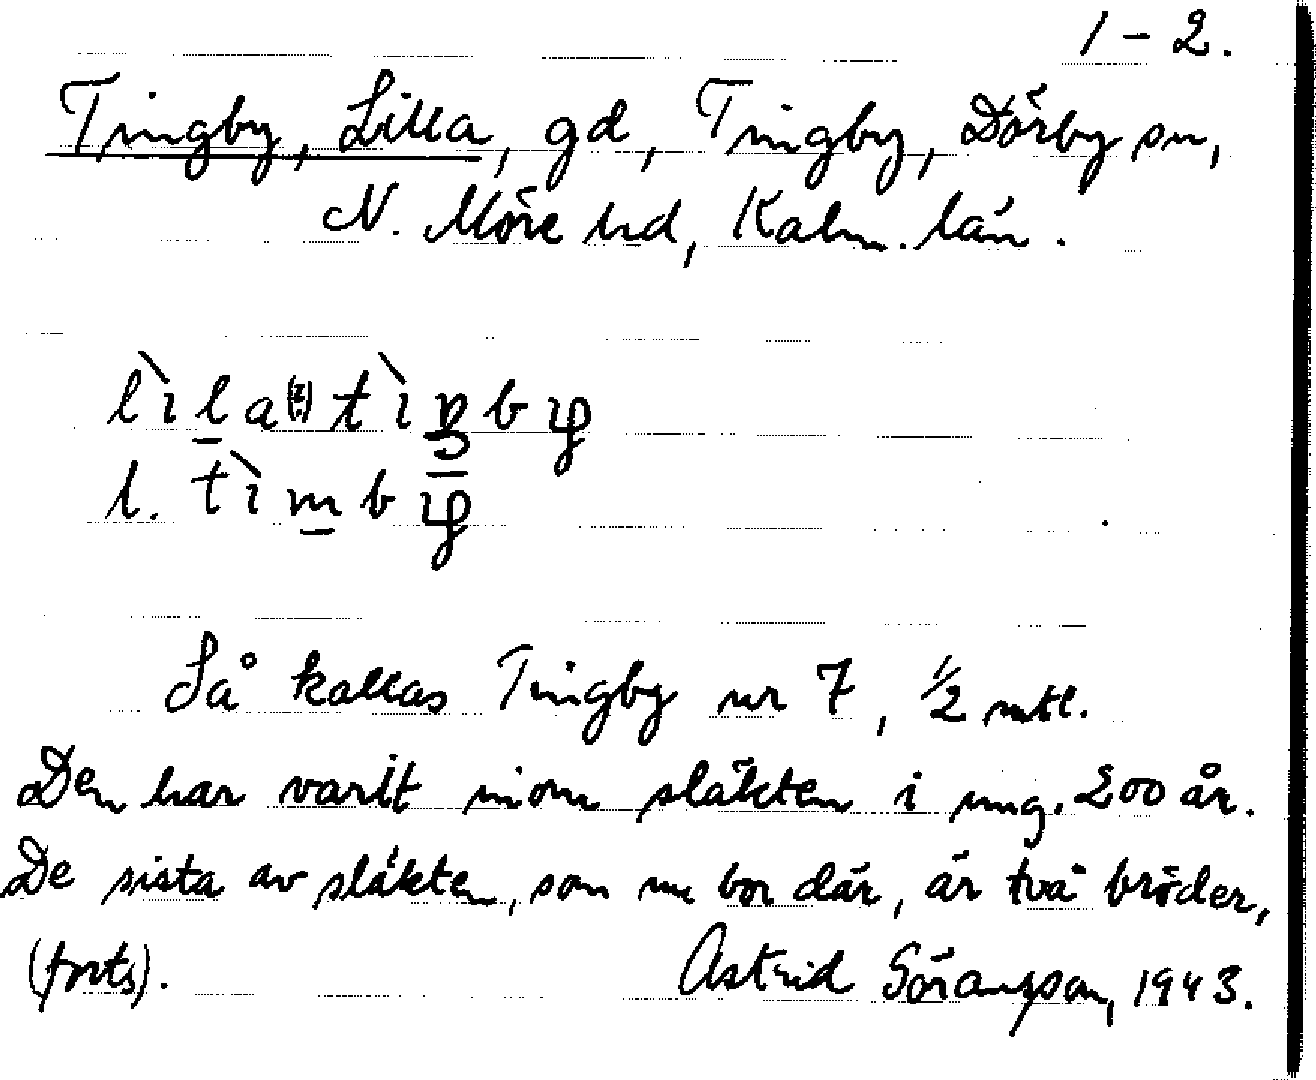 1-2.
Tingby, Lilla, gd, Tingby, Dörby sn,
N. Möre hd, Kalm. län.
l. 
Så kallas Tingby nr 7, 1/2 mtl.
Den har varit inom släkten i ung. 200 år.
De sista av släkten, som nu bor där, är två bröder,
(forts). Astrid Göransson, 1943.